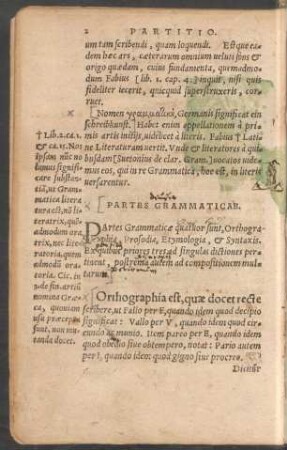 2 PARTITIO.
um tam scribendi, quam loquendi. Estque ea-
dem hæc ars, cæterarum omnium veluti fons &
origo quædam, cuius fundamenta, quemadmo-
dum Fabius [lib. 1. cap. 4.] inquit, nisi quis
fideliter iecerit, quicquid superstruxerit, cor-
ruet.
[Nomen γραμματικὴ, Germanis significat ein
schreibkunst. Habet enim appellationem à pri-
mis artis initijs, videlicet à literis. Fabius † Lati-
ne Literaturam vertit. Vnde & literatores à qui-
busdam [Suetonius de clar. Gram.] vocatos vide-
mus eos, qui in re Grammatica, hoc est, in literis
versarentur.
† Lib. 2. ca. 1.
& ca. 15. Nos
ipsam nunc no-
lumus significa-
re substanti-
uā, ut Gram-
matica litera-
tura est, nō li-
teratrix, que-
admodum ora-
trix, nec litera-
toria, quemad-
modum ora-
toria. Cic. in
de fin. artiū
nomina Græ-
ca, quorum
usus præcepto-
funt, non mu-
tanda docet.
PARTES GRAMMATICAE.
PArtes Grammaticæ quatuor sunt, Orthogra-
phia, Prosodia, Etymologia, & Syntaxis.
Ex quibus priores tres ad singulas dictiones per-
tinent, postrema autem ad compositionem mul-
tarum.
[Orthographia est, quæ docet recte
scribere, ut Fallo per F, quando idem quod decipio
significat: Vallo per V, quando idem quod cir-
cundo ac munio. Item pareo per E, quando idem
quod obedio siue obtempero, notat: Pario autem
per I, quando idem quod gigno siue procreo.
Dicitur